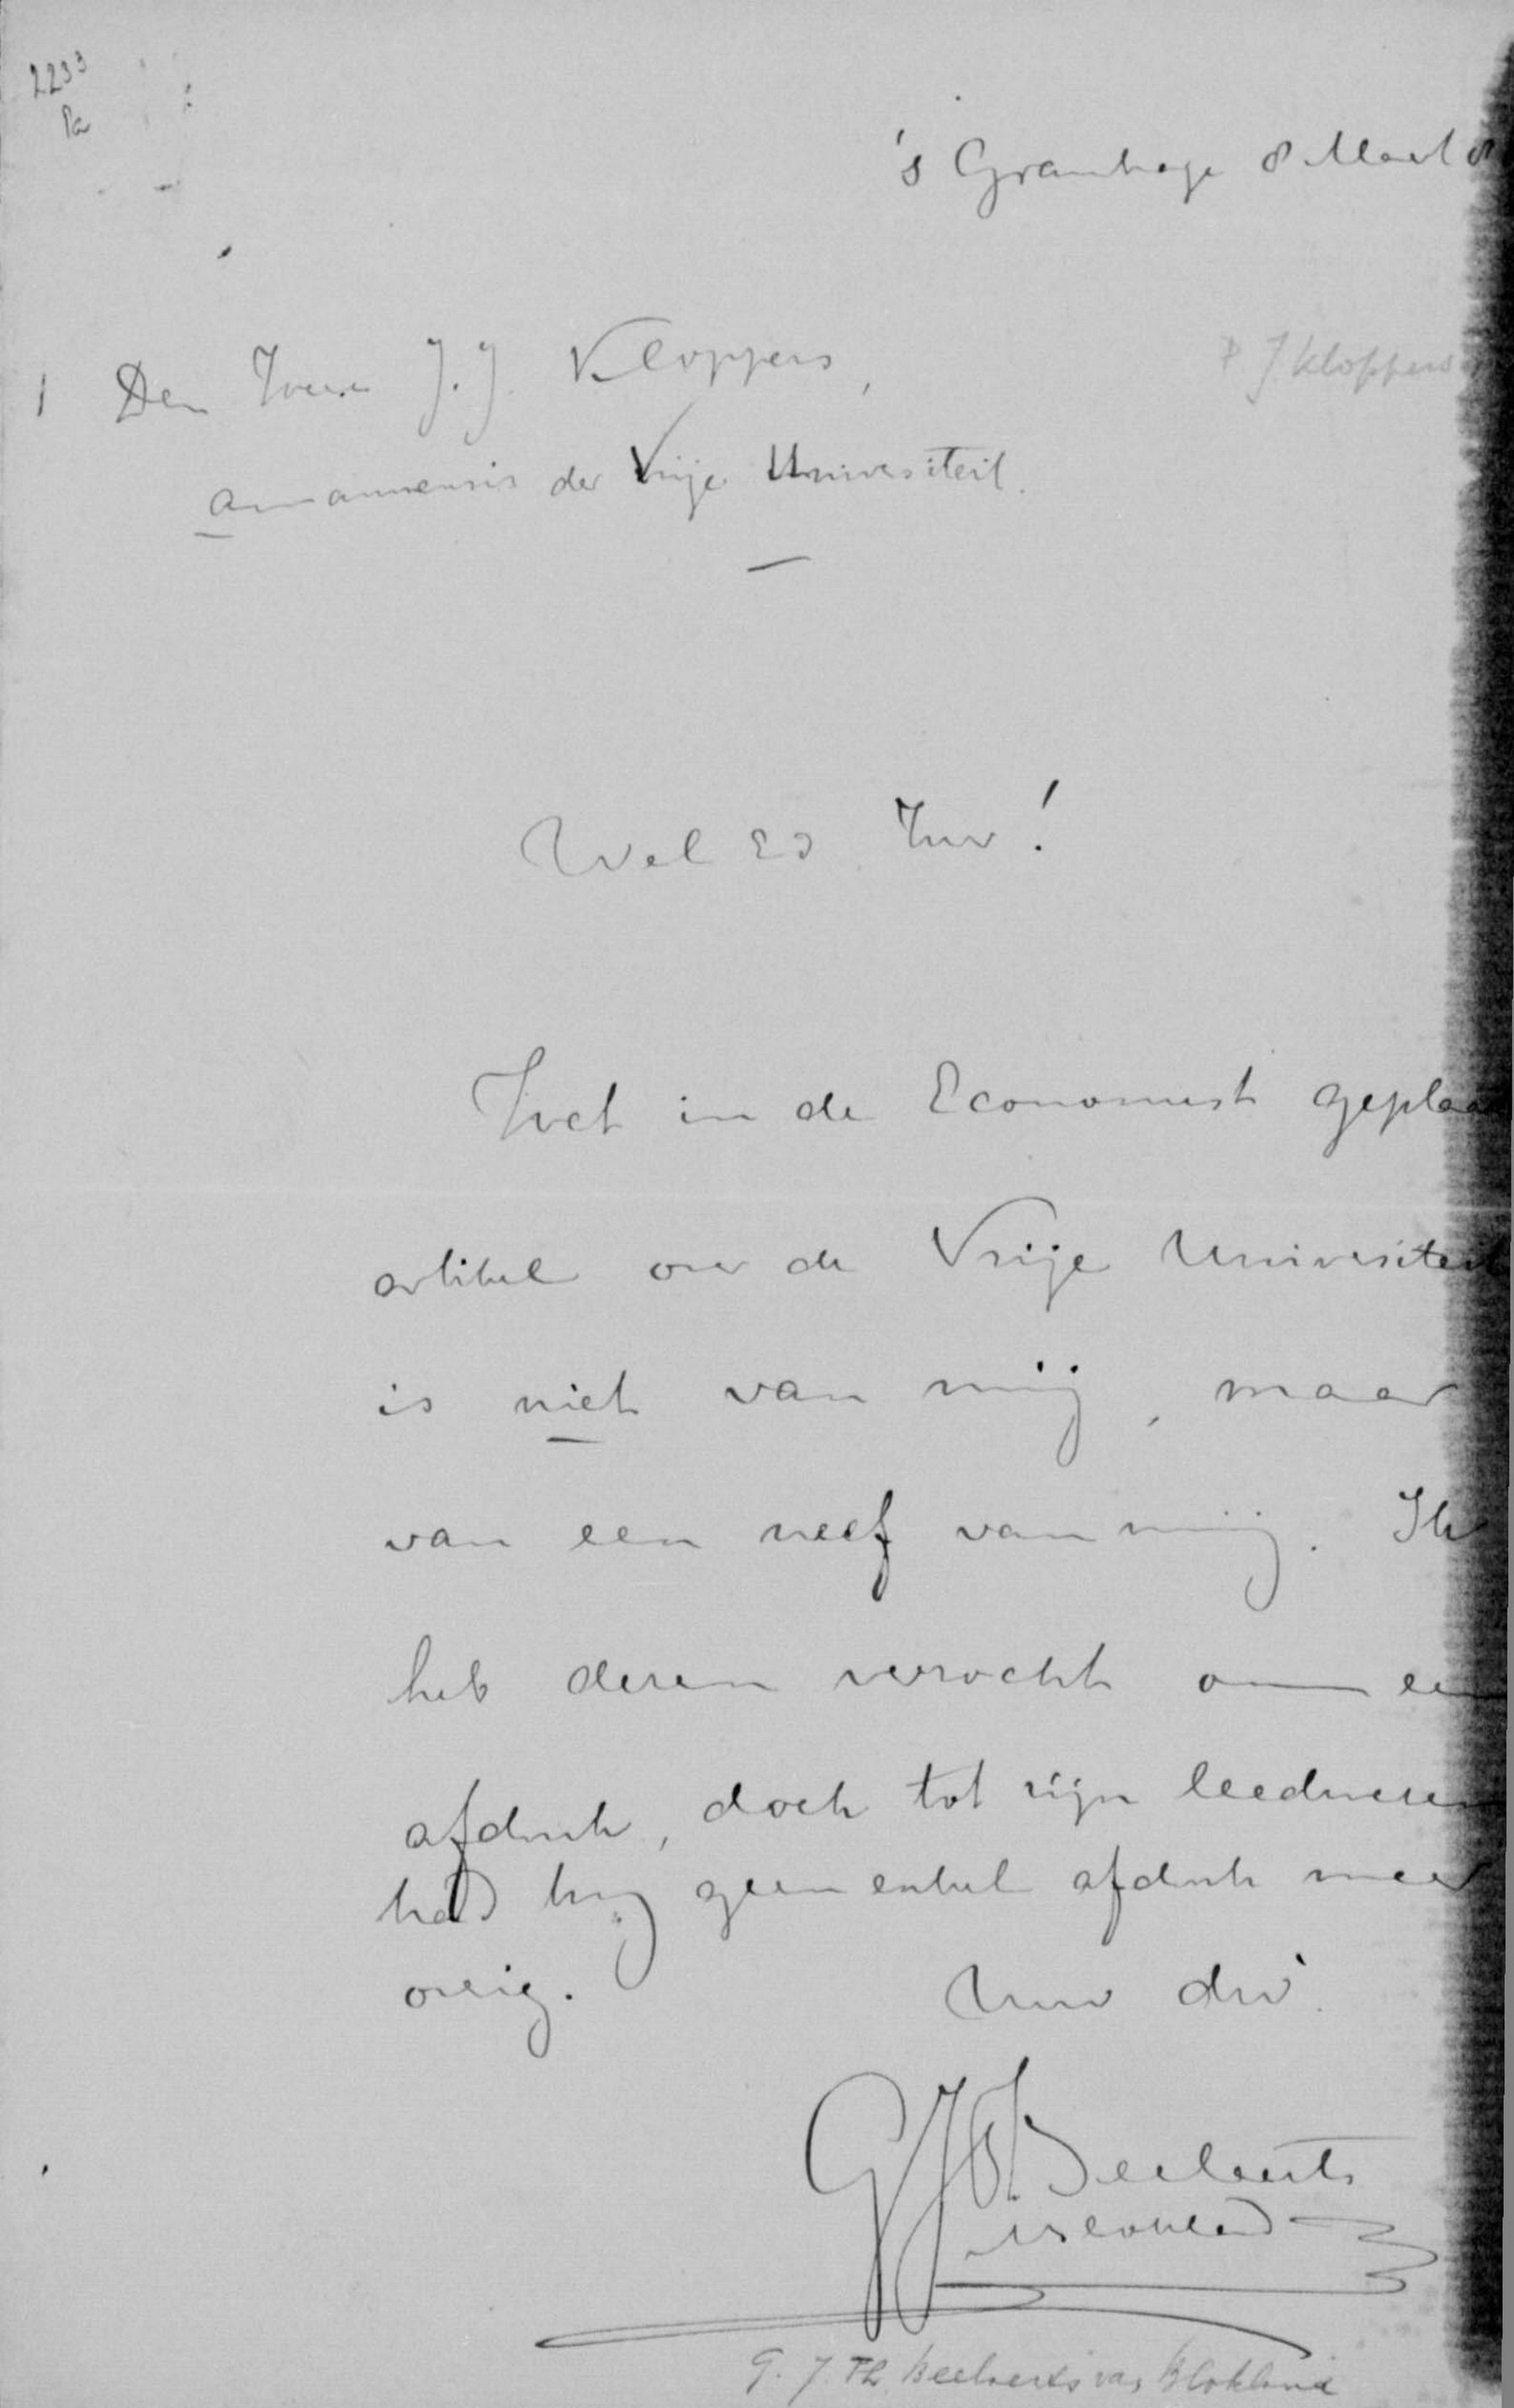 2233
Pa
's Gravenhage 8 Maart 8
Den Heer J. J. Kloppers,
P J. Kloppers
amanuensis der Vrije Universiteit.
Wel Ed Heer!
Het in de Economist geplaa
artikel over de Vrije Universiteit
is niet van mij, maar
van een neef van mij. Ik
heb dezen verzocht om een
afdruk, doch tot zijn leedwezen
had hij geen enkel afdruk meer
overig.
Uw dw.
GJTh Beelaerts
v Blokland
G. J. Th. Beelaerts van Blokland